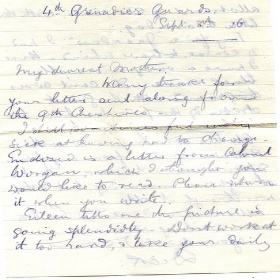 4th Grenadier Guards.
Sept. 26
My dearest Mother,
Many thanks for
your letters and along from
the 9th Cheshires
I
sick at having had to
Enclosed is a letter from Colonel
Worgan, which I thought you
would like to read. Please
it when you write.
Eileen tells me the picture is
going splendidly don't work at
it too hard, & take your daily